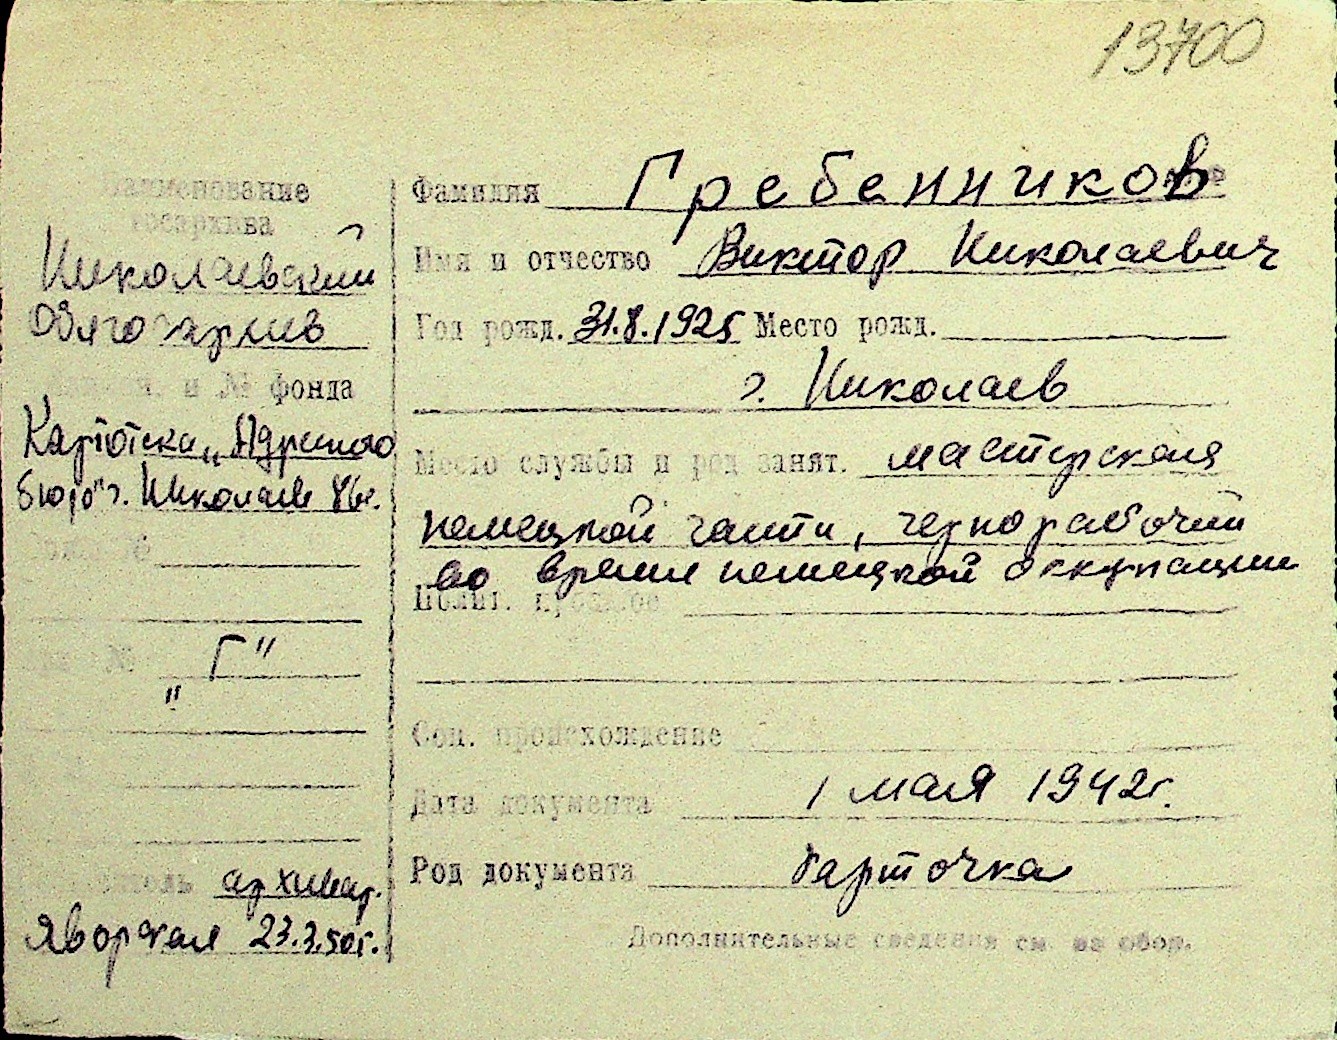 13700
Наименование
госархива
Николаевский
Облгосархив
и № фонда
Картотека „Адресного
бюро" г. Николаев
№
„Г"
архивар.
Яворская 23.3.50г.
Фамилия Гребенников
Имя и отчество Виктор Николаевич
Год рожд. 31.8.1925 Место рожд.
г. Николаев
Место службы и род занят. мастерская
немецкой части, чернорабочий
во время немецкой оккупации
Полит. прошлое
Соц. происхождение
Дата документа 1 мая 1942г.
Род документа карточка
Дополнительные сведения см. на обор.